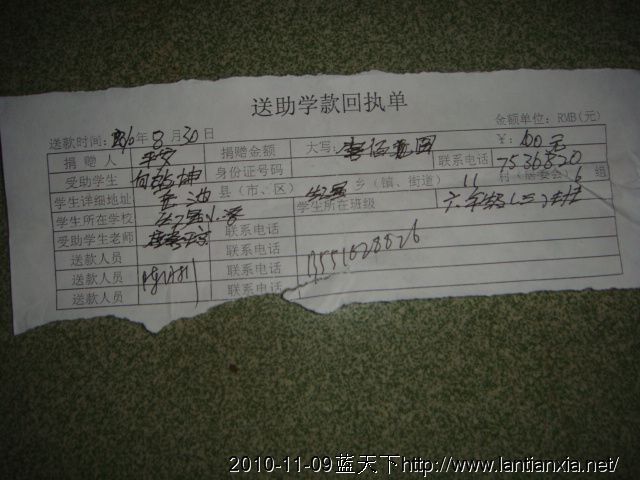 送助学款回执单
金额单位: RMB(元)
送款时间: 2010年8月30日
捐赠人 平安 捐赠金额 大写: 壹佰元 ¥: 100元
受助学生 向乾坤 身份证号码 联系电话 7536820
学生详细地址 县(市、区) 乡(镇、街道) 11 村(居委会) 6 组
学生所在学校 学生所在班级 六年级(二)班
受助学生老师 联系电话
送款人员 联系电话
送款人员 联系电话 13551028826
送款人员 联系电话
2010-11-09蓝天下http://www.lantianxia.net/